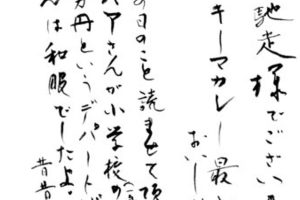 馳走様でございま
キーマカレー最
おいし
の日のこと読ませて頂
アさんが小学校の
丹というデパート
は和服でしたよ。
昔昔